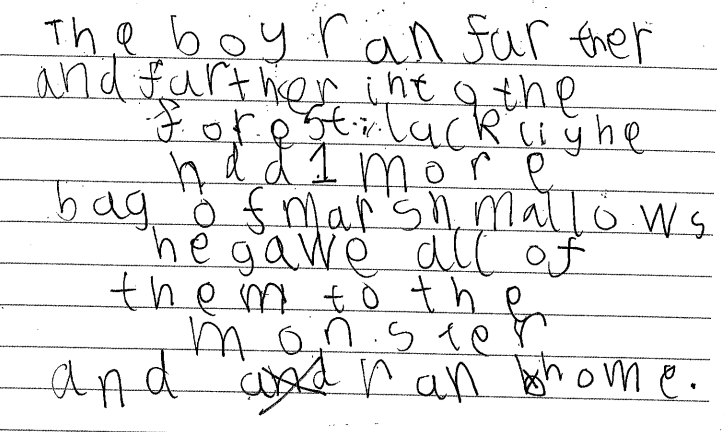 The boy ran further
and further into the
forest. luckliy he
had 1 more
bag of marshmallows
he gawe all of
them to the
monster
and ran home.